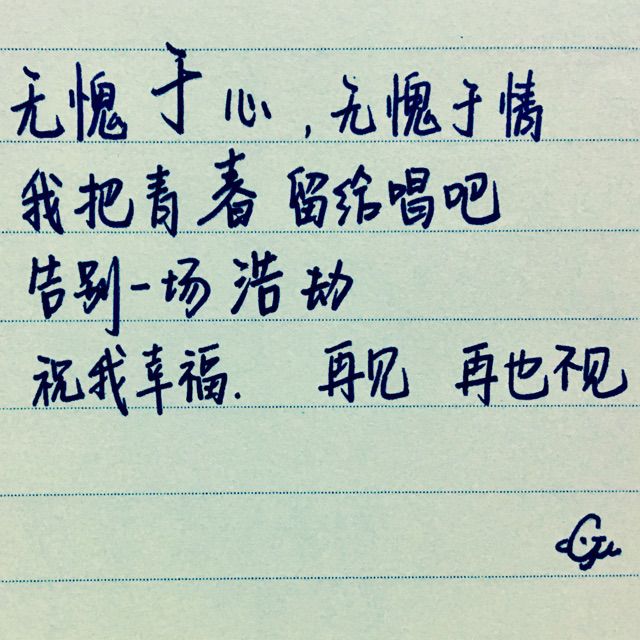 无愧于心,无愧于情
我把青春留给唱吧
告别一场浩劫
祝我幸福. 再见 再也不见